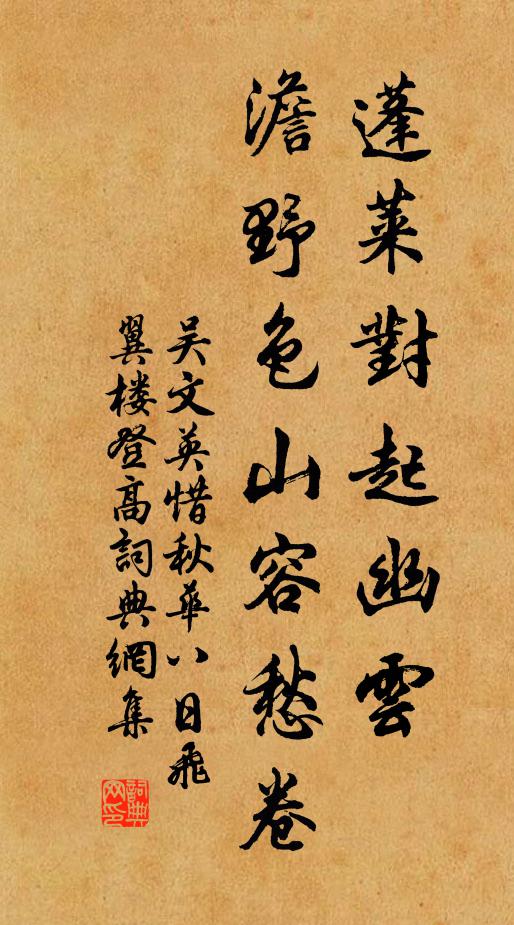 蓬萊對起幽雲
澹野色山容愁卷
吴文英惜秋華八日飛
翼楼登高詞典網集
詞典网印